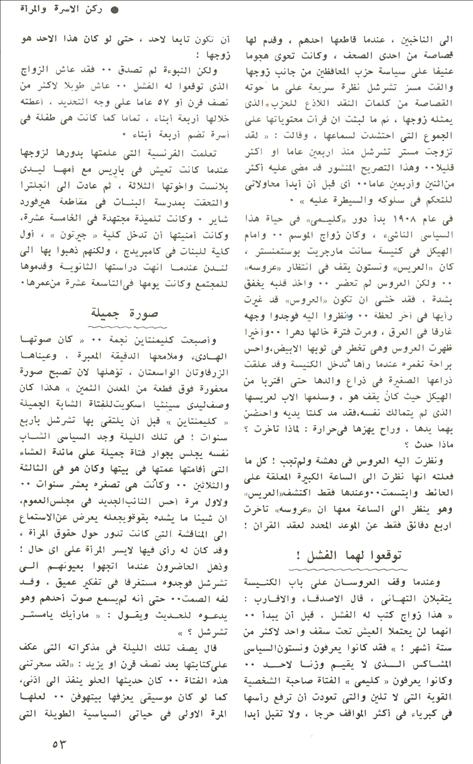 ● ركن الاسرة والمرأة
الى الناخبين ، عندما قاطعها احدهم ، وقدم لها
قصاصة من احدى الصحف ، وكانت تحوى هجوما
عنيفا على سياسة حزب المحافظين من جانب زوجها
والقت مسز تشرشل نظرة سريعة على ما حوته
القصاصة من كلمات النقد اللاذع للحزب الذى
يمثله زوجها ، ثم ما لبثت ان قرأت محتوياتها على
الجموع التى احتشدت لسماعها ، وقالت : « لقد
تزوجت مستر تشرشل منذ اربعين عاما او اكثر
قليلا ٠٠ وهذا التصريح المنشور قد مضى عليه أكثر
من اثنين وأربعين عاما ٠٠ أى قبل أن أبدأ محاولاتى
للتحكم فى سلوكه والسيطرة عليه »
فى عام ١٩٠٨ بدأ دور «كليمى» فى حياة هذا
السياسى الناشىء ، وكان زواج الموسم ٠٠ وامام
الهيكل فى كنيسة سانت مارجريت بوستمنستر ،
كان «العريس» ونستون يقف فى انتظار «عروسه»
٠٠ ولكن العروس لم تحضر ٠٠ واخذ قلبه يخفق
بشدة ، فقد خشى ان تكون «العروس» قد غيرت
رأيها فى آخر لحظة ٠٠ ونظروا اليه فوجدوا وجهه
غارقا فى العرق ، ومرت فترة خالها دهرا ٠٠ وأخيرا
ظهرت العروس وهى تخطر فى ثوبها الابيض، واحس
براحة تغمره عندما رآها تدخل الكنيسة وقد علقت
ذراعها الصغيرة فى ذراع والدها حتى اقتربا من
الهيكل حيث كان يقف هو ، وسلمها الاب لعريسها
الذى لم يتمالك نفسه، فقد مد كلتا يديه واحتضن
بهما يدها ، وراح يهزها فى حرارة : لماذا تأخرت ؟
ماذا حدث ؟
ونظرت اليه العروس فى دهشة ولم تجب ! كل ما
فعلته انها نظرت الى الساعة الكبيرة المعلقة على
الحائط وابتسمت ٠٠ وعندها فقط اكتشف «العريس»
وهو ينظر الى الساعة معها ان «عروسه» تأخرت
اربع دقائق فقط عن الموعد المحدد لعقد القران !
توقعوا لهما الفشل !
وعندما وقف العروسان على باب الكنيسة
يتقبلان التهانى ، قال الاصدقاء والاقارب :
« هذا زواج كتب له الفشل ، قبل أن يبدأ ٠٠
انهما لن يحتملا العيش تحت سقف واحد لاكثر من
ستة أشهر ! » فقد كانوا يعرفون ونستون السياسى
المشاكس الذى لا يقيم وزنا لاحد ٠٠
وكانوا يعرفون « كليمى » الفتاة صاحبة الشخصية
القوية التى لا تلين والتى تعودت أن ترفع رأسها
فى كبرياء فى أكثر المواقف حرجا ، ولا تقبل أبدا
أن تكون تابعا لاحد ، حتى لو كان هذا الاحد هو
زوجها !
ولكن النبوءة لم تصدق ٠٠ فقد عاش الزواج
الذى توقعوا له الفشل ٠٠ عاش طويلا لاكثر من
نصف قرن أو ٥٧ عاما على وجه التحديد ، أعطته
خلالها أربعة أبناء ، تماما كما كانت هى طفلة فى
أسرة تضم أربعة أبناء ٠
تعلمت الفرنسية التى علمتها بدورها لزوجها
عندما كانت تعيش فى باريس مع أمها ليدى
بلانست واخوتها الثلاثة ، ثم عادت الى انجلترا
والتحقت بمدرسة البنات فى مقاطعة هيرفورد
شاير ٠ وكانت تلميذة مجتهدة فى الخامسة عشرة،
وكانت أمنيتها أن تدخل كلية « جيرتون » ، أول
كلية للبنات فى كامبريدج ، ولكنهم ذهبوا بها الى
لندن عندما انهت دراستها الثانوية وقدموها
للمجتمع وكانت يومها فى التاسعة عشرة من عمرها ٠
صورة جميلة
وأصبحت كليمنتاين نجمة ٠٠ « كان صوتها
الهادىء وملامحها الدقيقة المعبرة ، وعيناها
الزرقاوتان الواسعتان ، تؤهلها لان تصبح صورة
محفورة فوق قطعة من المعدن الثمين » هكذا كان
وصف ليدى سينثيا اسكويت للفتاة الشابة الجميلة
« كليمنتاين » قبل أن يلتقى بها تشرشل بأربع
سنوات ! فى تلك الليلة وجد السياسى الشاب
نفسه يجلس بجوار فتاة جميلة على مائدة العشاء
التى أقامتها عمتها فى بيتها وكان هو فى الثالثة
والثلاثين ٠٠ وكانت هى تصغره بعشر سنوات ٠٠
ولاول مرة أحس النائب الجديد فى مجلس العموم،
أن شيئا ما يشده بقوة ويجعله يعرض عن الاستماع
الى المناقشة التى كانت تدور حول حقوق المرأة ،
وقد كان له رأى فيها لايسر المرأة على اى حال !
وذهل الحاضرون عندما اتجهوا بعيونهم الى
تشرشل فوجدوه مستغرقا فى تفكير عميق ، وقد
لفه الصمت ٠٠ حتى أنه لم يسمع صوت أحدهم وهو
يدعوه للحديث ويقول : « ما رأيك يا مستر
تشرشل ؟ »
قال يصف تلك الليلة فى مذكراته التى عكف
على كتابتها بعد نصف قرن او يزيد : «لقد سحرتنى
هذه الفتاة ٠٠ كان حديثها الحلو ينفذ الى اذنى،
كما لو كان موسيقى يعزفها بيتهوفن ٠٠ لعلها
المرة الاولى فى حياتى السياسية الطويلة التى
٥٣